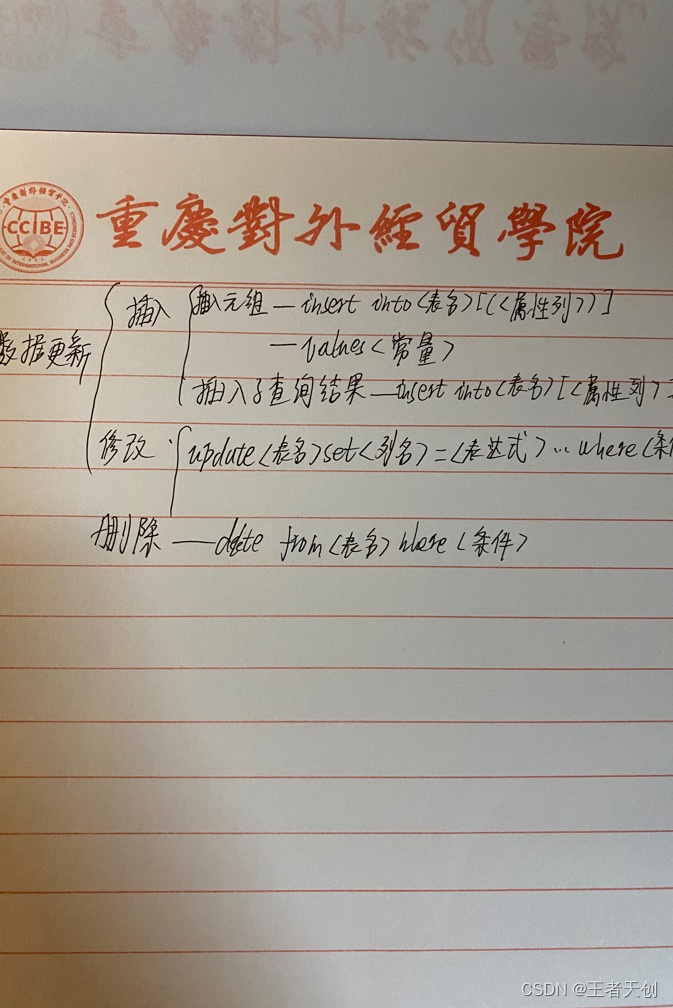 CCIBE
重慶對外經貿學院
插入 插元组 — insert into <表名> [(<属性列>)]
数据更新 — values <常量>
插入子查询结果 — insert into <表名> [<属性列>
修改 update <表名> set <列名> = <表达式> … where <条件
删除 — delete from <表名> where <条件>
CSDN @王者天创